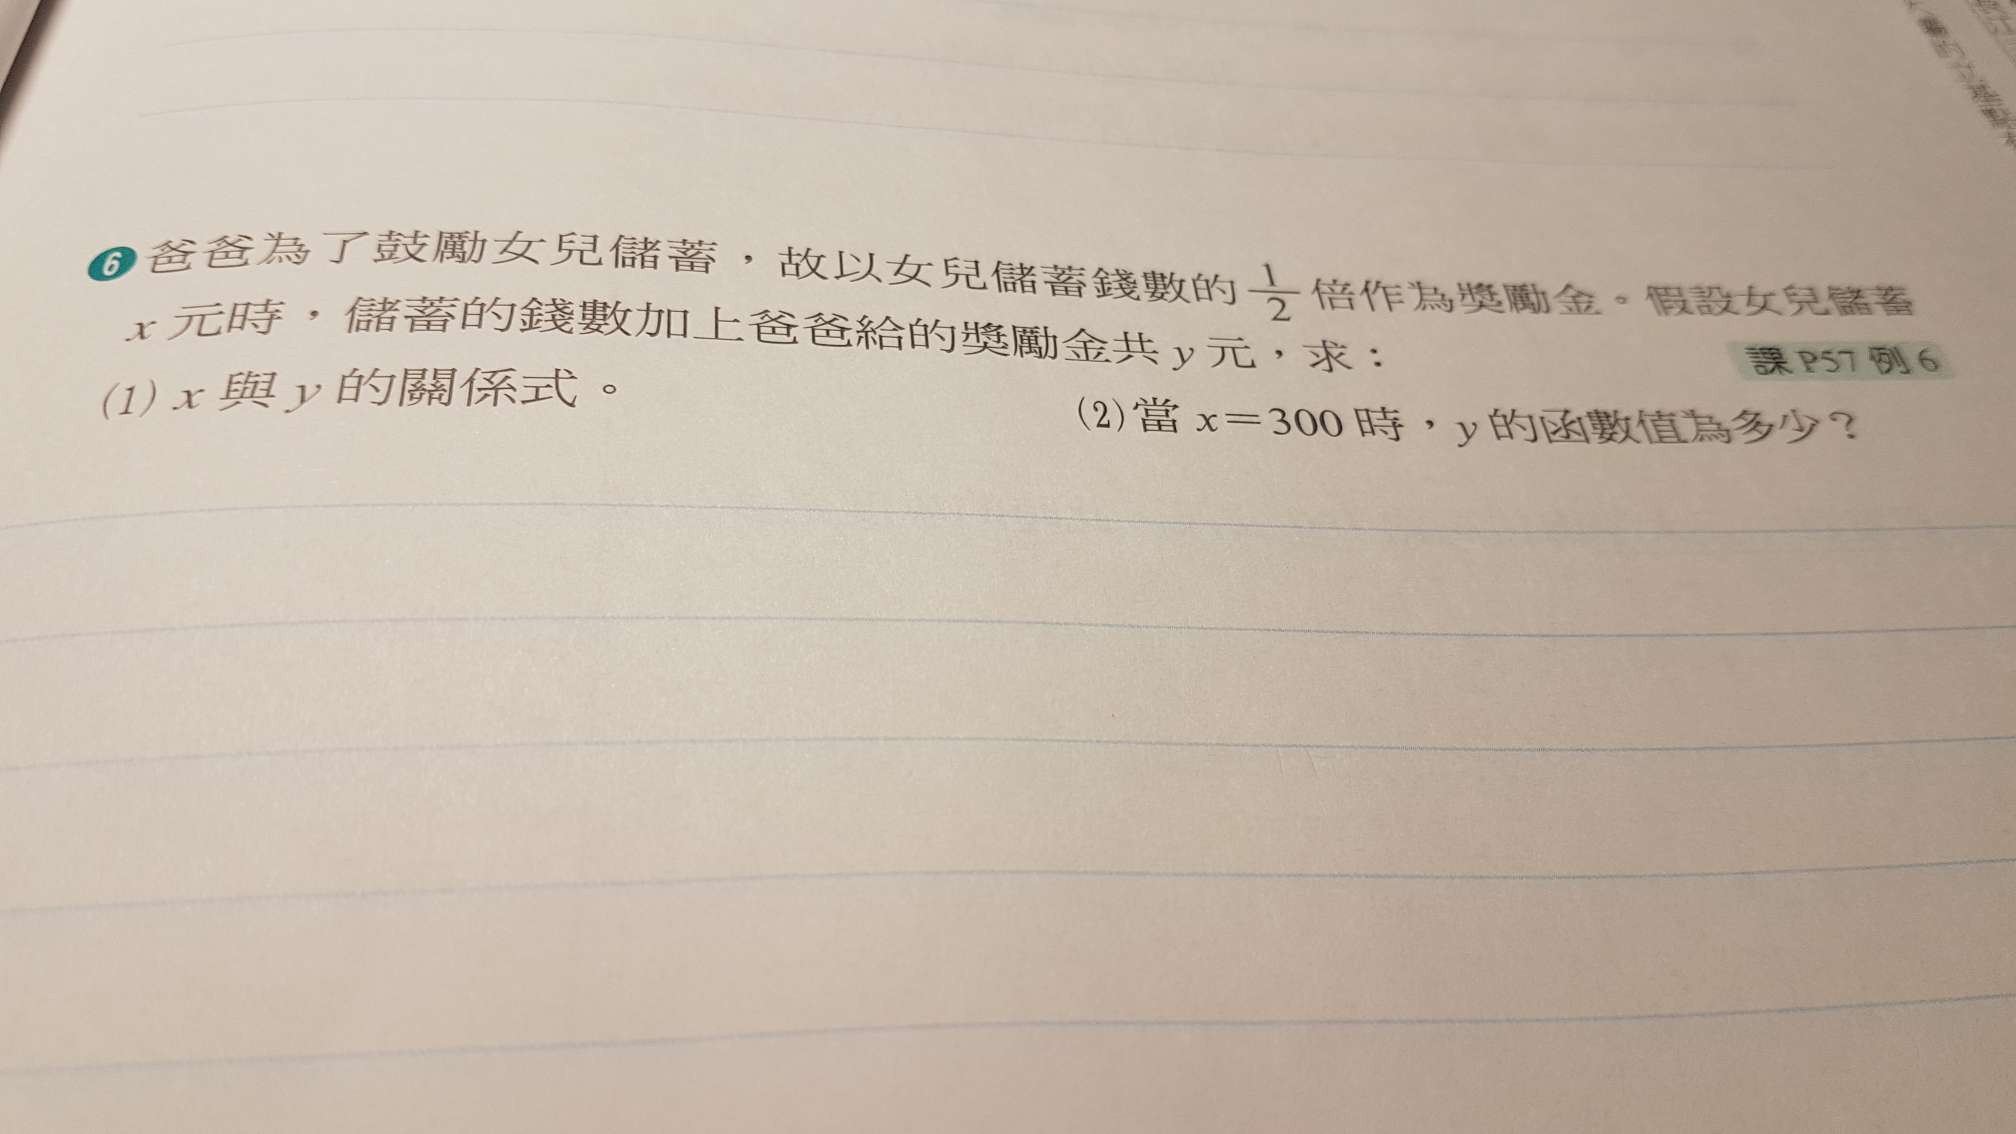 6 爸爸為了鼓勵女兒儲蓄，故以女兒儲蓄錢數的 1/2 倍作為獎勵金。假設女兒儲蓄
x 元時，儲蓄的錢數加上爸爸給的獎勵金共 y 元，求：
課 P57 例 6
(1) x 與 y 的關係式。
(2) 當 x＝300 時，y 的函數值為多少？